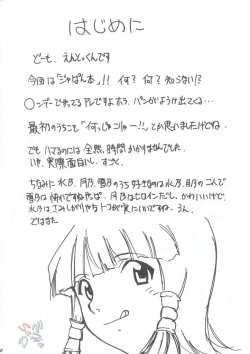 はじめに
どーも、えんどっくんです
今回は「じゃぱん本」!! 何? 何? 知らない!?
○ンデーで来てるアレですよホラ、パンがようけ出てくる…
最初のうちこそ「何っじゅこりゅー!!」とか思いましたけどね
でもハマるのには全然、時間かかりませんでした。
いや、実際面白いし、すごく
ちなみに水乃、月乃、雪乃のうち好きなのは水乃、月乃の二人で
雪乃は怖いですねやっぱ。月乃はヒロインだし、かわいいけど、
水乃はさみしがりやなトコが実にいいですね、うん。
ではまた